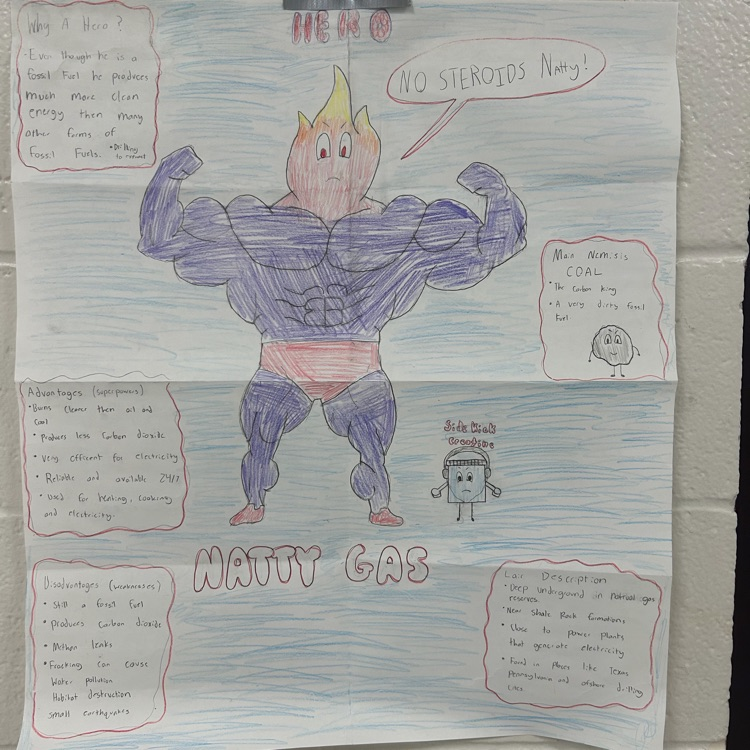 HERO
Why A Hero?
-Even though he is a
fossil fuel he produces
much more clean
energy then many
other forms of
fossil fuels.
NO STEROIDS Natty!
Main Nemisis
COAL
• The Carbon King
• A very dirty fossil
fuel
Advantages (superpowers)
• Burns cleaner then oil and
coal
• Produces less Carbon dioxide
• Very efficent for electricity
• Reliable and available 24/7
• Used for heating, cooking
and electricity.
Side Kick
Creatine
NATTY GAS
Disadvantages (weaknesses)
• Still a fossil fuel
• Produces Carbon dioxide
• Methan leaks
• Fracking can cause
Water pollution
Habitat destruction
small earthquakes
Lair Description
• Deep underground in natural gas
reserves
• Near Shale Rock formations
• Close to power plants
that generate electricity
• Found in places like Texas
Pennsylvania and offshore drilling